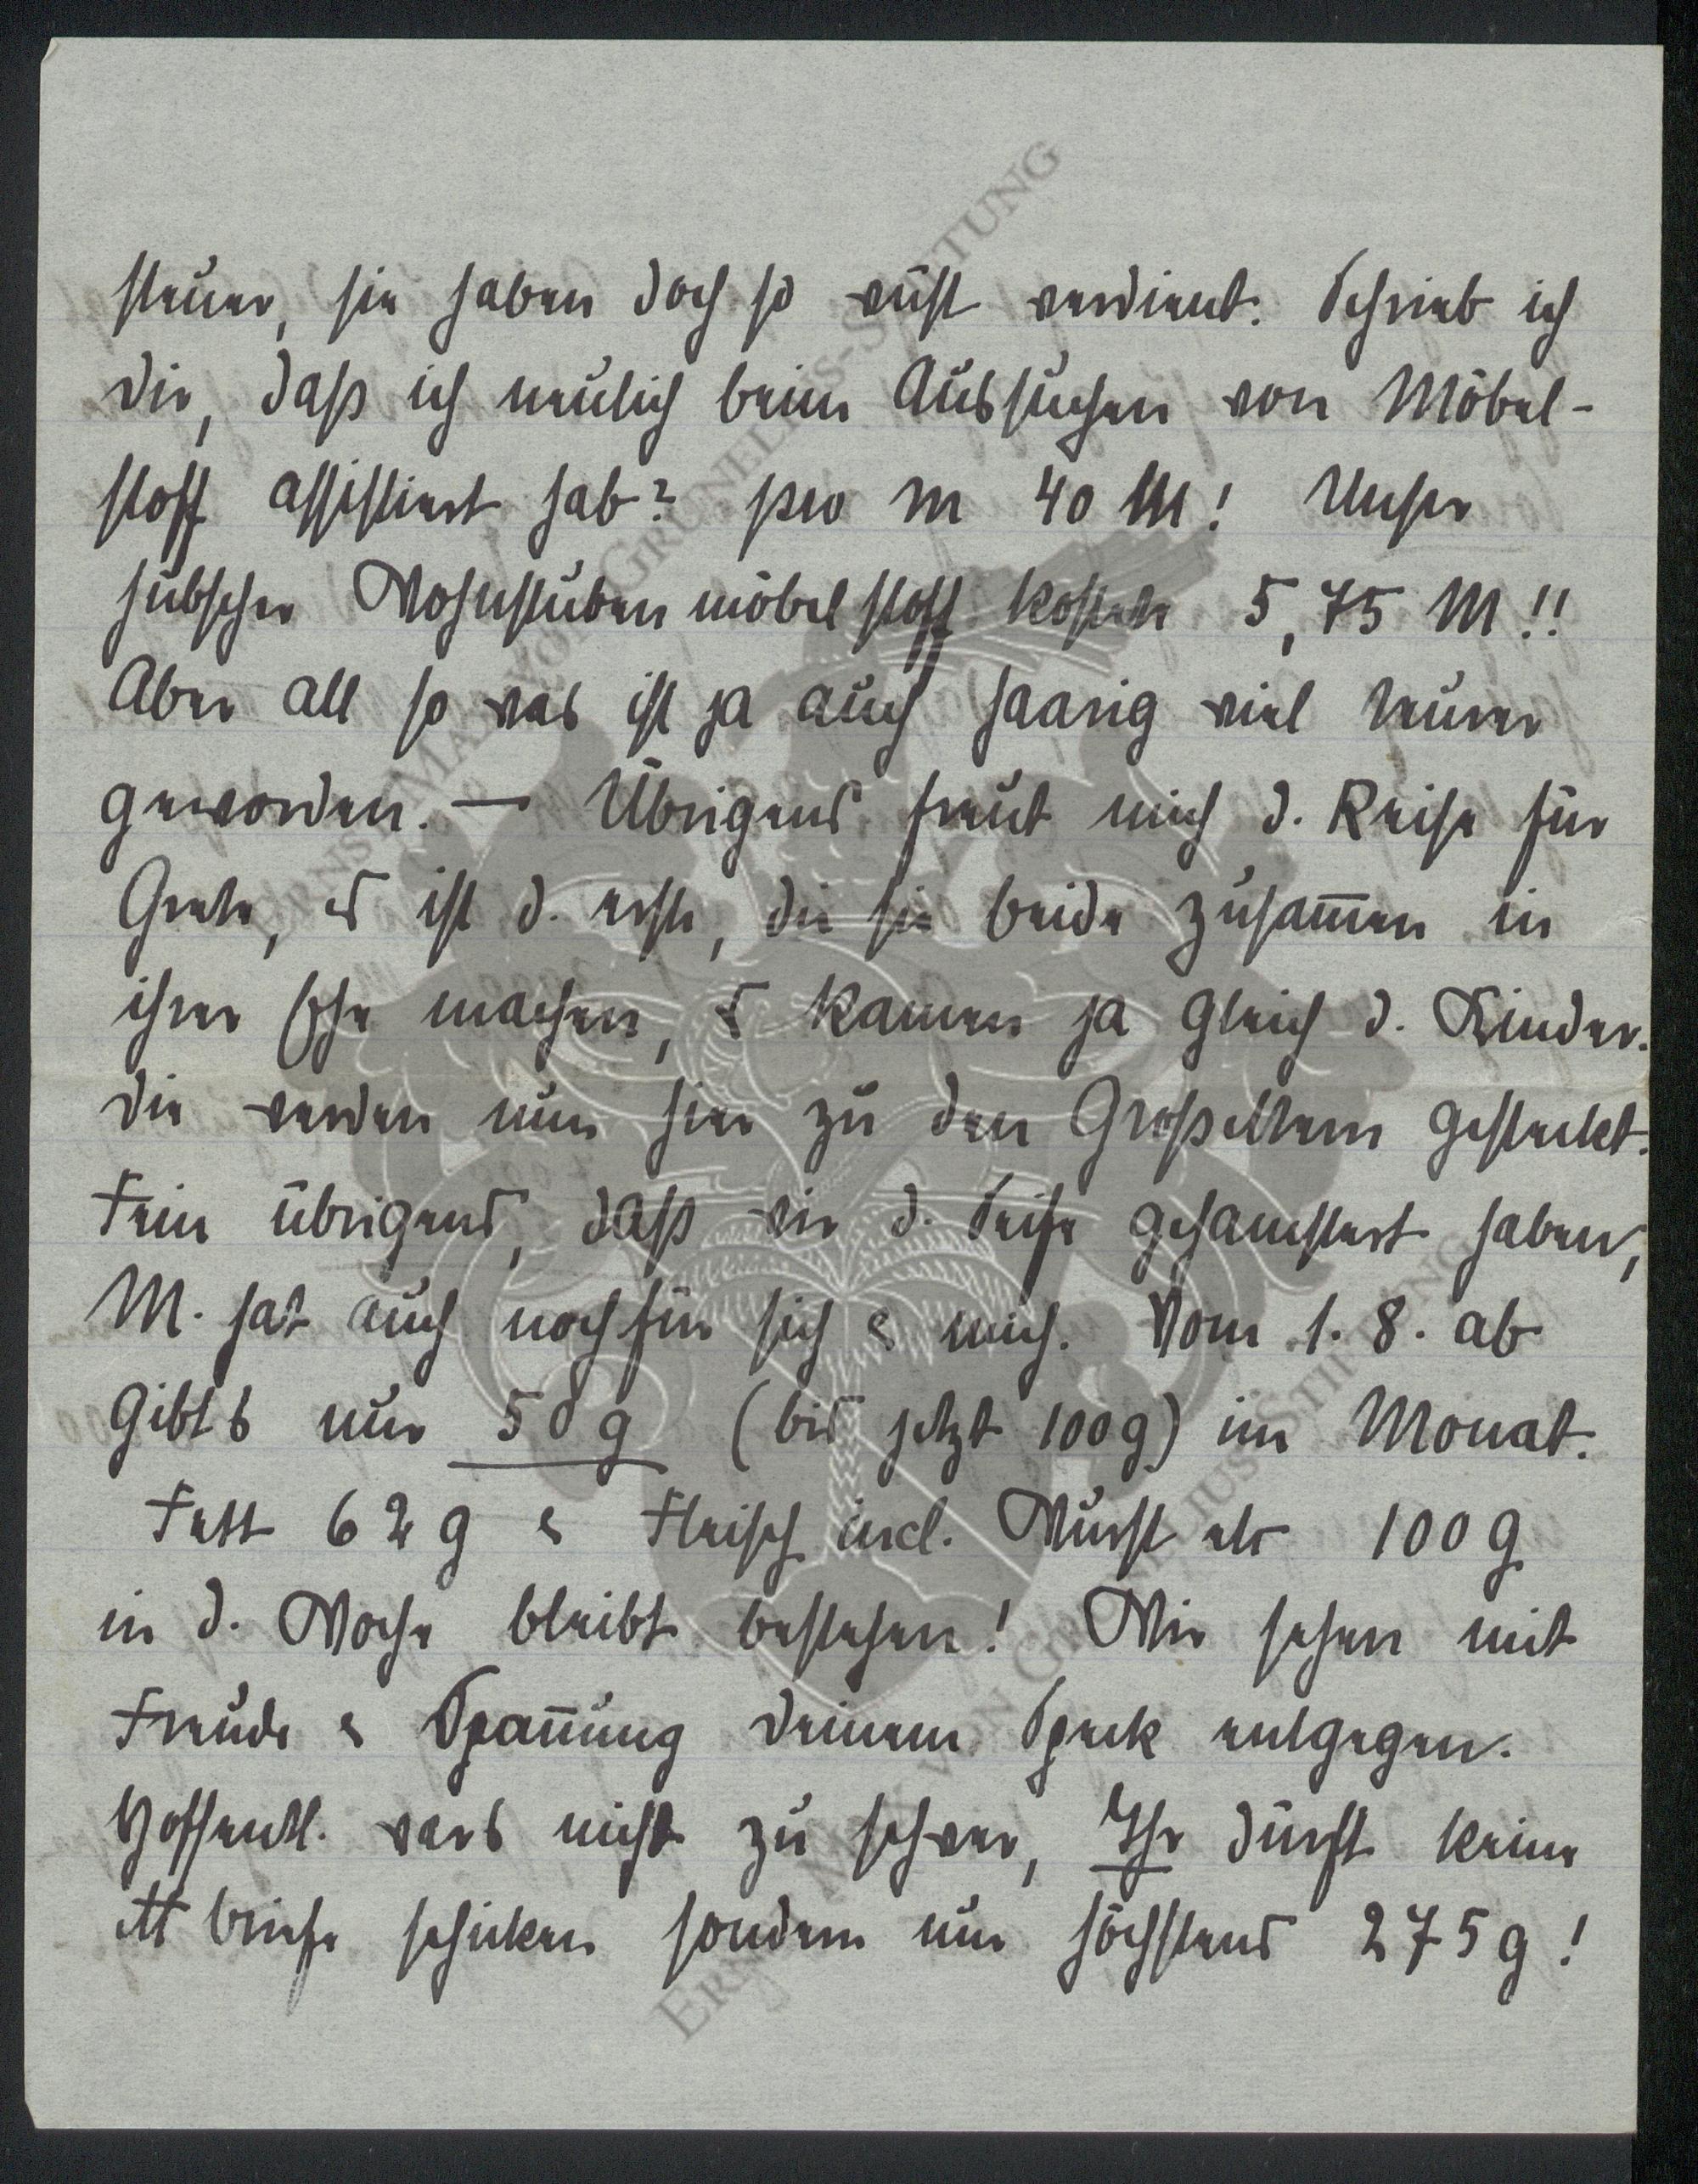 steuer, sie haben doch so wüst verdient. Schrieb ich
Dir, daß ich neulich beim Aussuchen von Möbel-
stoff assistiert hab? pro m 40 M! Unser
hübscher Wohnstubenmöbelstoff kostete 5,75 M!!
Aber all so was ist ja auch haarig viel teurer
geworden. — Übrigens freut mich d. Reise für
Grete, es ist d. erste, die sie beide zusam̅en in
ihrer Ehe machen, es kamen ja gleich d. Kinder.
Die werden nun hier zu den Großeltern gesteckt.
Fein übrigens, daß wir d. Seife gehamstert haben,
M. hat auch noch für sich & mich. Vom 1. 8. ab
gibts nur 50 g (bis jetzt 100 g) im Monat.
Fett 62 g & Fleisch incl. Wurst etc 100 g
in d. Woche bleibt bestehen! Wir sehen mit
Freude & Span̅ung Deinem Speck entgegen.
Hoffentl. wars nicht zu schwer, Ihr dürft keine
℔ briefe schicken sondern nur höchstens 275 g!
ERNST-MAX VON GRUNELIUS-STIFTUNG
ERNST MAX VON GRUNELIUS STIFTUNG